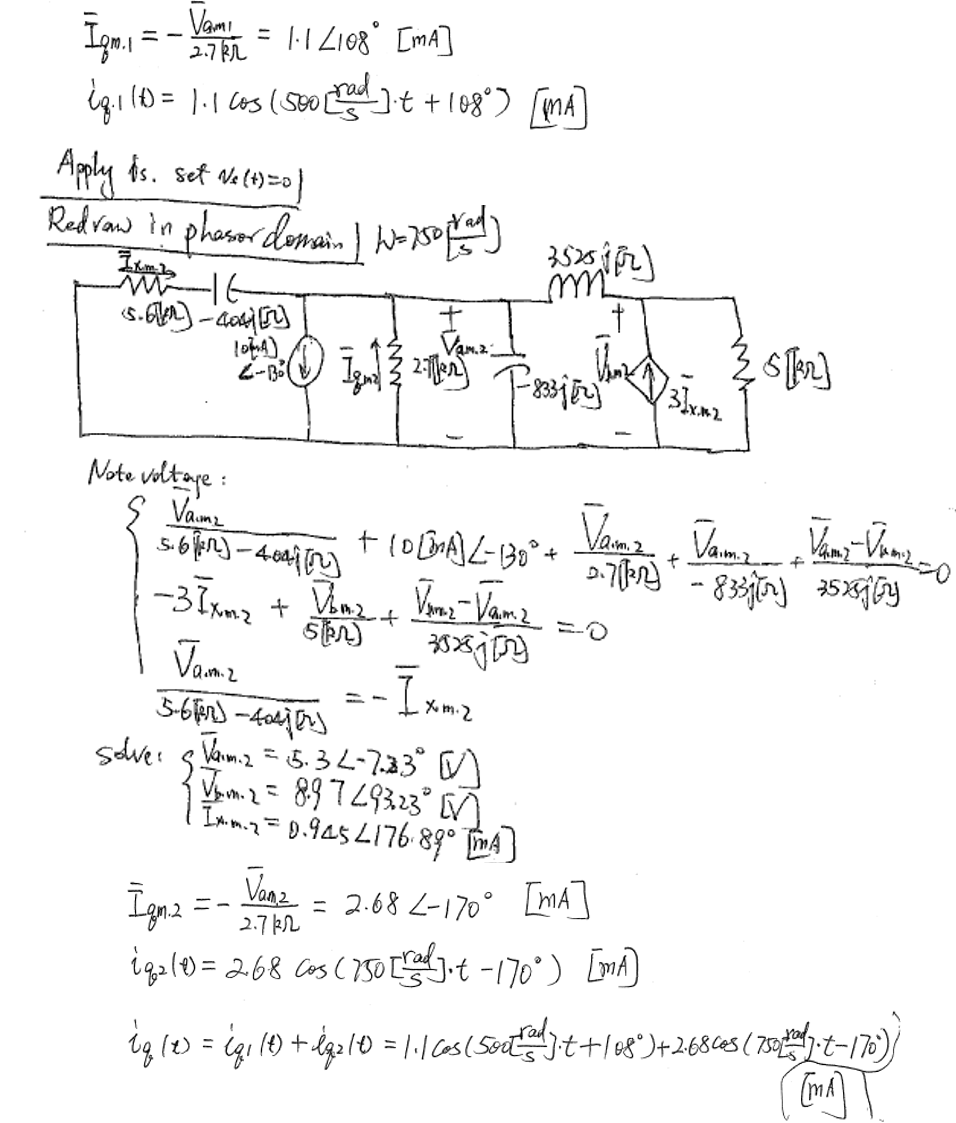 Īqm.1 = - V̄am1 / 2.7kΩ = 1.1∠108° [mA]
iq.1(t) = 1.1 cos(500[rad/s]·t + 108°) [mA]
Apply is. set vs(t)=0
Redraw in phasor domain | W=750[rad/s]
Īx.m.2
3525j[Ω]
5.6[kΩ] -404j[Ω]
10[mA] ∠-130°
Īqm2
2.7[kΩ]
+ V̄am.2 -
-833j[Ω]
+ V̄bm2 -
3Īx.m2
5[kΩ]
Note voltage:
V̄a.m2 / (5.6[kΩ]-404j[Ω]) + 10[mA]∠-130° + V̄a.m.2 / 2.7[kΩ] + V̄am.2 / -833j[Ω] + (V̄am.2-V̄bm.2) / 3525j[Ω] = 0
-3Īxm.2 + V̄bm.2 / 5[kΩ] + (V̄bm.2-V̄am.2) / 3525j[Ω] = 0
V̄a.m.2 / (5.6[kΩ]-404j[Ω]) = -Īx.m.2
solve: V̄a.m.2 = 5.3∠-7.23° [V]
V̄b.m.2 = 8.97∠93.23° [V]
Īx.m.2 = 0.945∠176.89° [mA]
Īqm.2 = - V̄am.2 / 2.7kΩ = 2.68∠-170° [mA]
iq2(t) = 2.68 cos(750[rad/s]·t -170°) [mA]
iq(t) = iq1(t) + iq2(t) = 1.1cos(500[rad/s]·t+108°)+2.68cos(750[rad/s]·t-170°)
[mA]